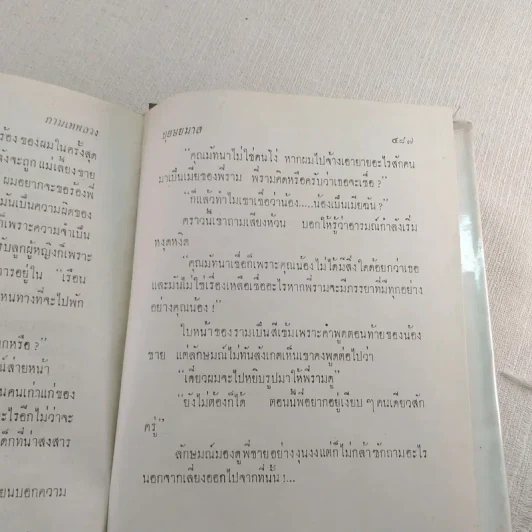 กามเทพลวง
ร้องของผมในครั้งสุด
ังจะถูกแม่เลี้ยงขาย
ผมอยากจะขอร้องพี่
มันเป็นความผิดของ
ก็เพราะความจำเป็น
รับลูกผู้หญิงก็เพราะ
การอยู่ใน "เรือน
หนทางที่จะไปพัก
กหรือ?"
น์ส่ายหน้า
นคนเก่าแก่ของ
ะไรอีกไม่ว่าจะ
ด็กที่น่าสงสาร
ยนบอกความ
บุษยมาส
๕๘๗
"คุณมัทนาไม่ใช่คนโง่ หากผมไปจ้างเอายายอะไรสักคน
มาเป็นเมียของพี่ราม พี่รามคิดหรือครับว่าเธอจะเชื่อ?"
"ก็แล้วทำไมเขาเชื่อว่าน้อง.....น้องเป็นเมียฉัน?"
คราวนี้เขาถามเสียงห้วน บอกให้รู้ว่าอารมณ์กำลังเริ่ม
หงุดหงิด
"คุณมัทนาเชื่อก็เพราะคุณน้องไม่ได้มีสิ่งใดด้อยกว่าเธอ
และมันไม่ใช่เรื่องเหลือเชื่ออะไรหากพี่รามจะมีภรรยาที่มีทุกอย่าง
อย่างคุณน้อง!"
ใบหน้าของรามเป็นสีเข้มเพราะคำพูดตอนท้ายของน้อง
ชาย แต่ลักษมณ์ไม่ทันสังเกตเห็นเขาคงพูดต่อไปว่า
"เดี๋ยวผมจะไปหยิบรูปมาให้พี่รามดู"
"ยังไม่ต้องก็ได้ ตอนนี้พี่อยากอยู่เงียบ ๆ คนเดียวสัก
ครู่"
ลักษมณ์มองดูพี่ชายอย่างงุนงงแต่ก็ไม่กล้าซักถามอะไร
นอกจากเลี่ยงออกไปจากที่นั้น!...